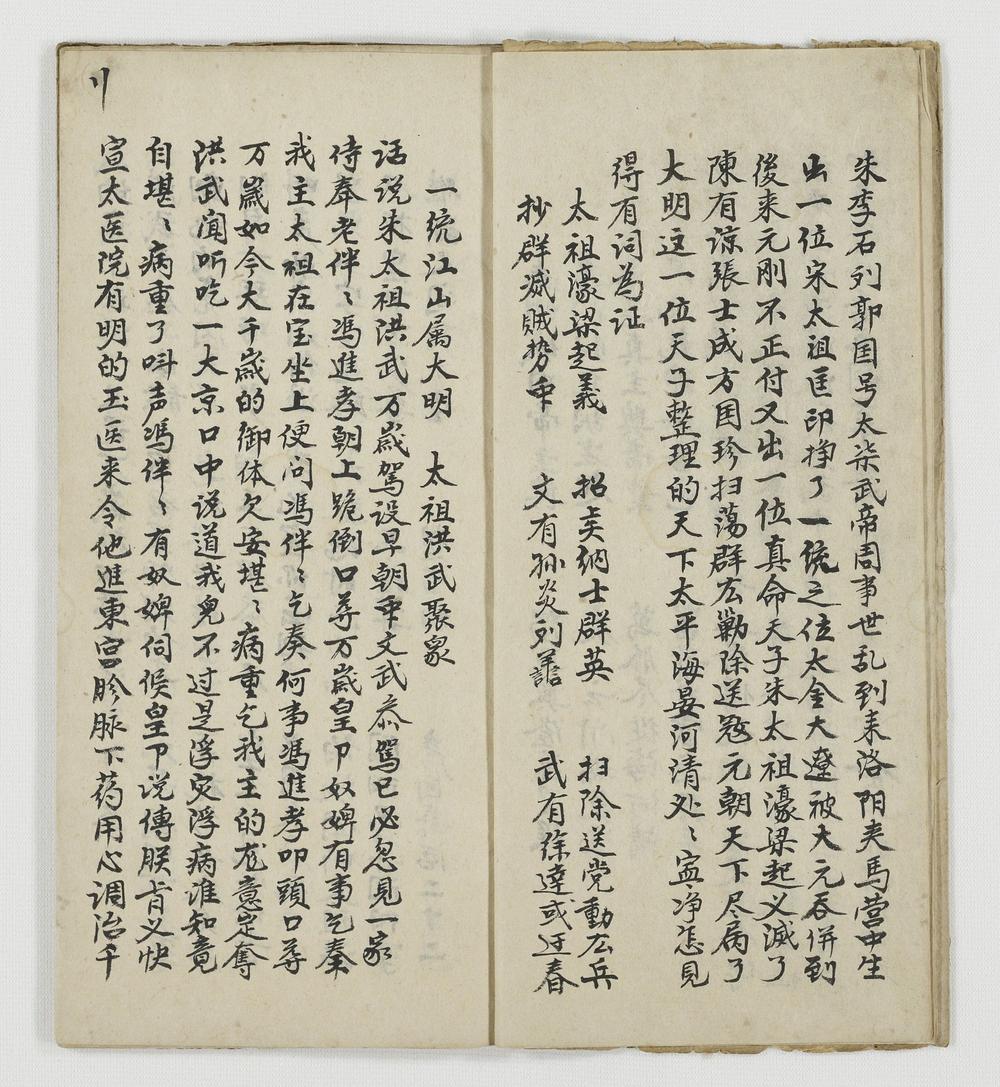 朱李石列郭囯号太柒武帝周事世乱到耒洛阳夹馬营中生
出一位宋太祖匡印挣了一统之位太金大遼被大元吞併到
後来元刚不正付又出一位真命天子朱太祖濠梁起义滅了
陳有諒張士成方囯珍扫荡群広勦除送冦元朝天下尽病了
大明这一位天子整理的天下太平海晏河清处〻寍净怎見
得有词为证
太祖濠梁起義 招美纳士群英 扫除送党動広兵
抄群滅贼势𠀐 文有孙炎列 武有徐達或迂春
一统江山属大明 太祖洪武聚家
话说朱太祖洪武万歲駕设早朝𠀐文武叅駕已必忽見一家
侍奉老伴〻馮進孝朝上跪倒口尊万歲皇卩奴婢有事乞奏
我主太祖在宝坐上便问馮伴〻乞奏何事馮進孝叩頭口尊
万歲如今大千歲的御体欠安堪〻病重乞我主的龙意定奪
洪武闻听吃一大京口中说道我兒不过是浮灾浮病谁知竟
自堪〻病重了呌声馮伴〻有奴婢伺候皇卩说傳朕旨义快
宣太医院有明的玉医来令他進東宫胗脉下药用心调治千